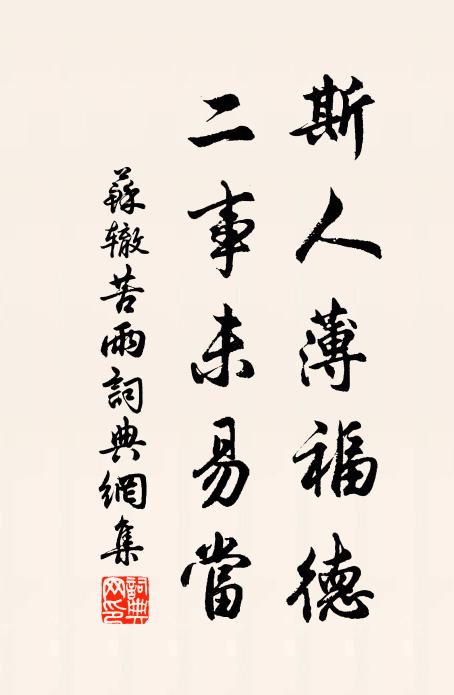 斯人薄福德
二事未易當
蘇辙苦雨詞典網集
詞典網印